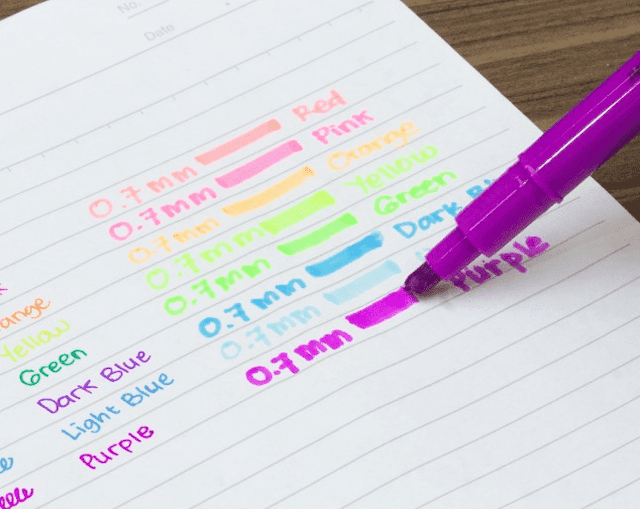 No.
Date
0.7mm Red
0.7mm Pink
0.7mm Orange
0.7mm Yellow
0.7mm Green
0.7mm Dark
0.7mm
0.7mm Purple
Yellow
Green
Dark Blue
Light Blue
Purple